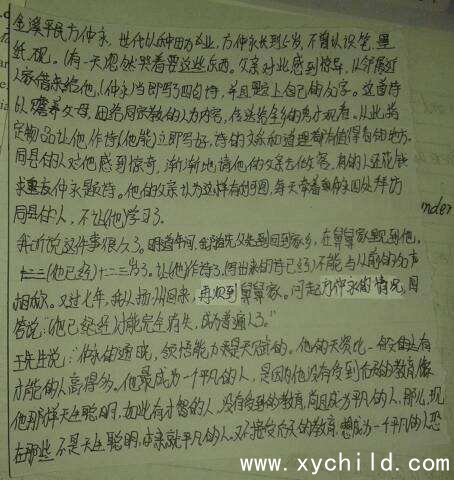 金溪平民方仲永,世代以种田为业,方仲永长到5岁,不曾认识笔、墨
纸、砚。(有一天)忽然哭着要这些东西。父亲对此感到惊异,从邻居近
人家借来给他,(仲永)当即写了四句诗,并且题上自己的名字。这首诗
以赡养父母、团结同宗族的人为内容,传送给全乡的秀才观看。从此指
定物品让他作诗(他能)立即写好,诗的文采和道理都有值得看的地方。
同县的人对他感到惊奇,渐渐地请他的父亲去做客,有的人还花钱
求仲永题诗。他的父亲认为这样有利可图,每天带着仲永四处拜访
同县的人,不让(他)学习了。
我听说这件事很久了。明道年间,我跟随先父回到家乡,在舅舅家里见到他,
(他已经)十二三岁了。让(他)作诗,写出来的诗(已经)不能与从前的名声
相称。又过七年,我从扬州回来,再次到舅舅家。问起方仲永的情况,回
答说:"(他已经)才能完全消失,成为普通人了。"
王先生说:"仲永的通晓、领悟能力是天赋的。他的天资比一般的有
才能的人高得多。他最成为一个平凡的人,是因为他没有受到后天的教育。像
他那样天生聪明,如此有才智的人,没有受到的教育,尚且成为平凡的人,那么,现
在那些不是天生聪明,本来就平凡的人,又不接受后天的教育,想成为一个平凡的人恐
nder
www.xychild.com